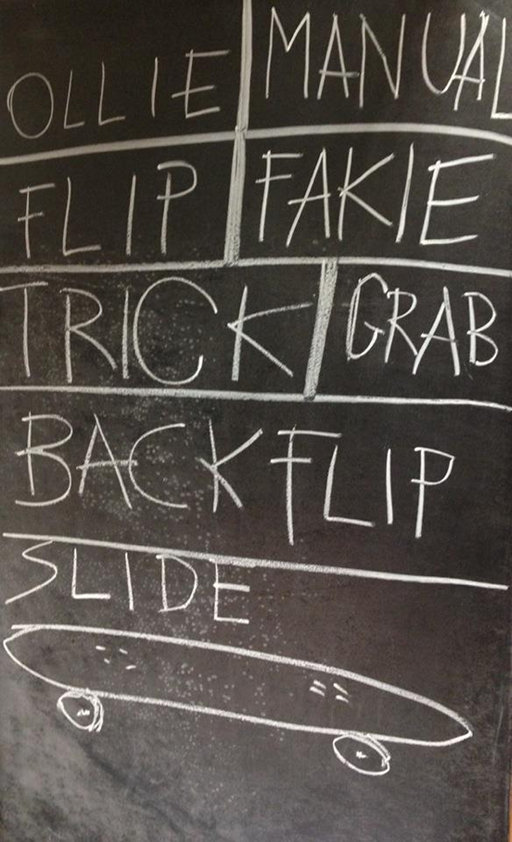 OLLIE MANUAL
FLIP FAKIE
TRICK GRAB
BACKFLIP
SLIDE